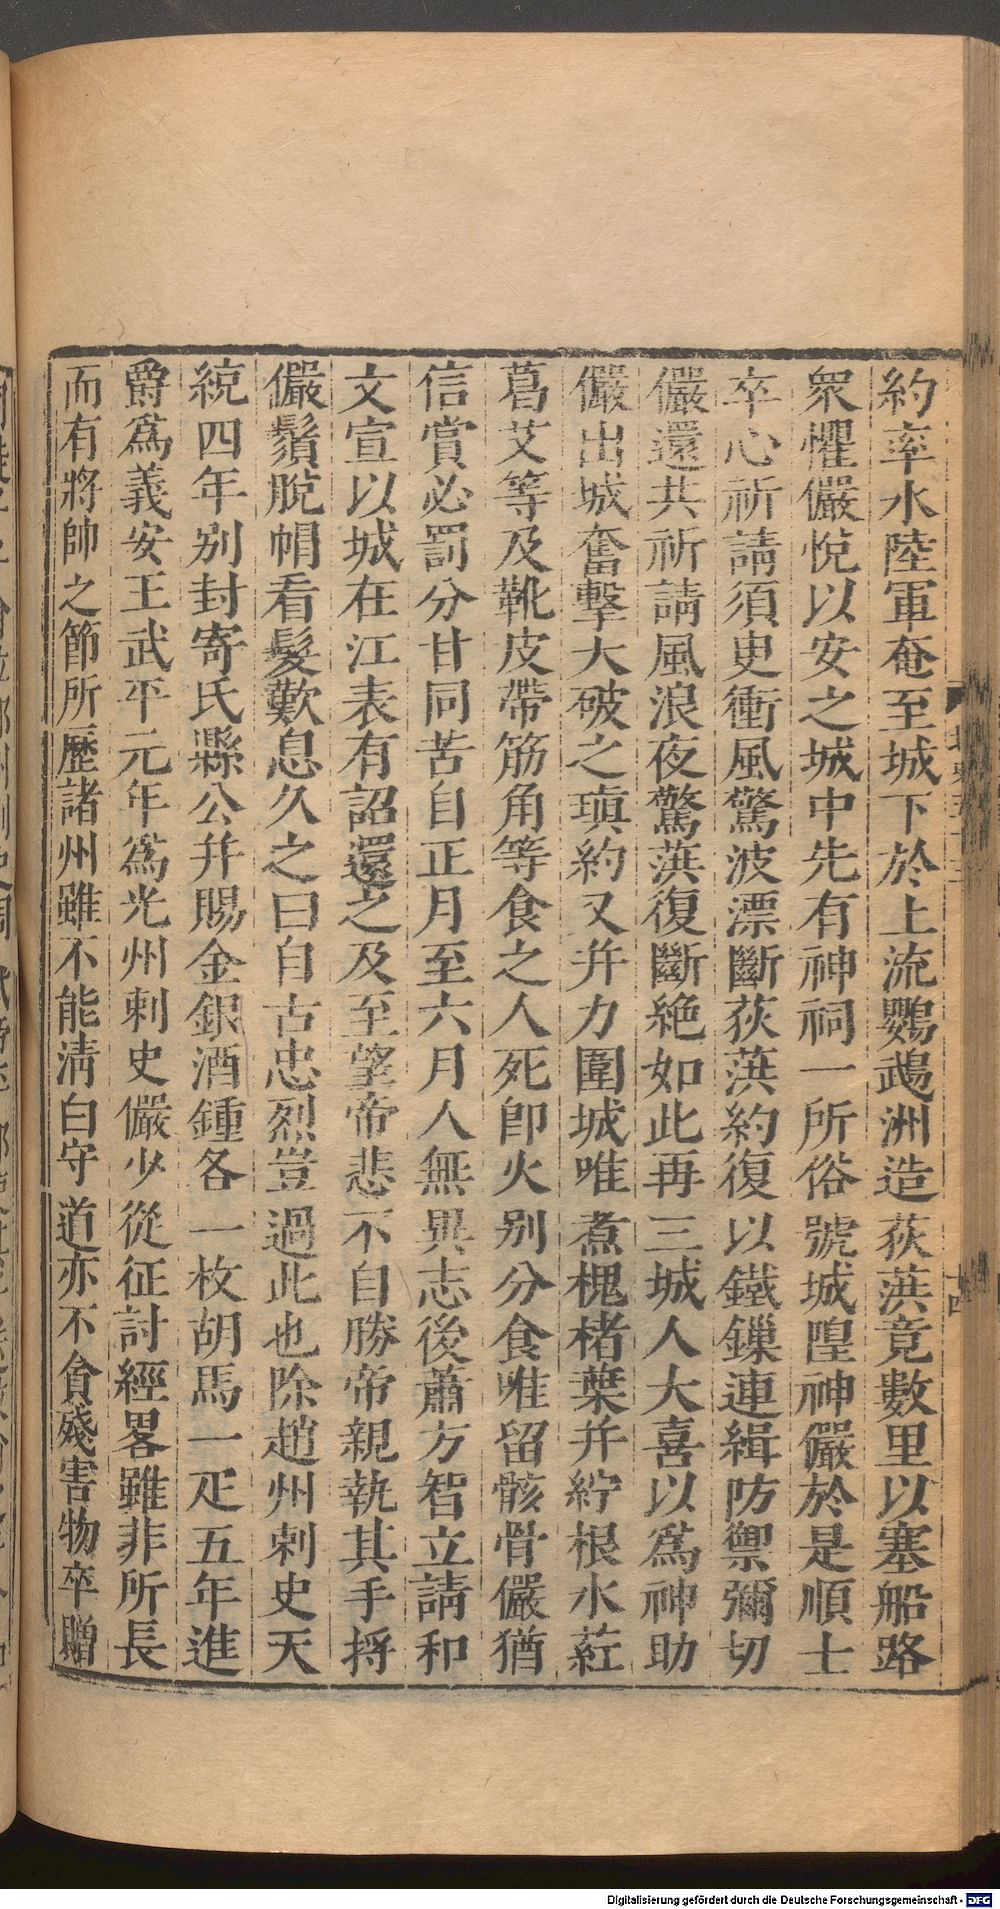 約率水陸軍奄至城下於上流鸚鵡洲造荻葓竟數里以塞船路
衆懼儼悅以安之城中先有神祠一所俗號城隍神儼於是順士
卒心祈請須臾衝風驚波漂斷荻葓約復以鐵鏁連緝防禦彌切
儼還共祈請風浪夜驚葓復斷絕如此再三城人大喜以爲神助
儼出城奮擊大破之瑱約又幷力圍城唯煮槐楮葉幷紵根水葒
葛艾等及靴皮帶筋角等食之人死卽火别分食唯留骸骨儼猶
信賞必罰分甘同苦自正月至六月人無異志後蕭方智立請和
文宣以城在江表有詔還之及至望帝悲不自勝帝親執其手捋
儼鬚脫帽看髮歎息久之曰自古忠烈豈過此也除趙州刺史天
統四年别封寄氏縣公幷賜金銀酒鍾各一枚胡馬一疋五年進
爵爲義安王武平元年爲光州刺史儼少從征討經畧雖非所長
而有將帥之節所歷諸州雖不能清白守道亦不貪殘害物卒贈
十四
Digitalisierung gefördert durch die Deutsche Forschungsgemeinschaft - DFG